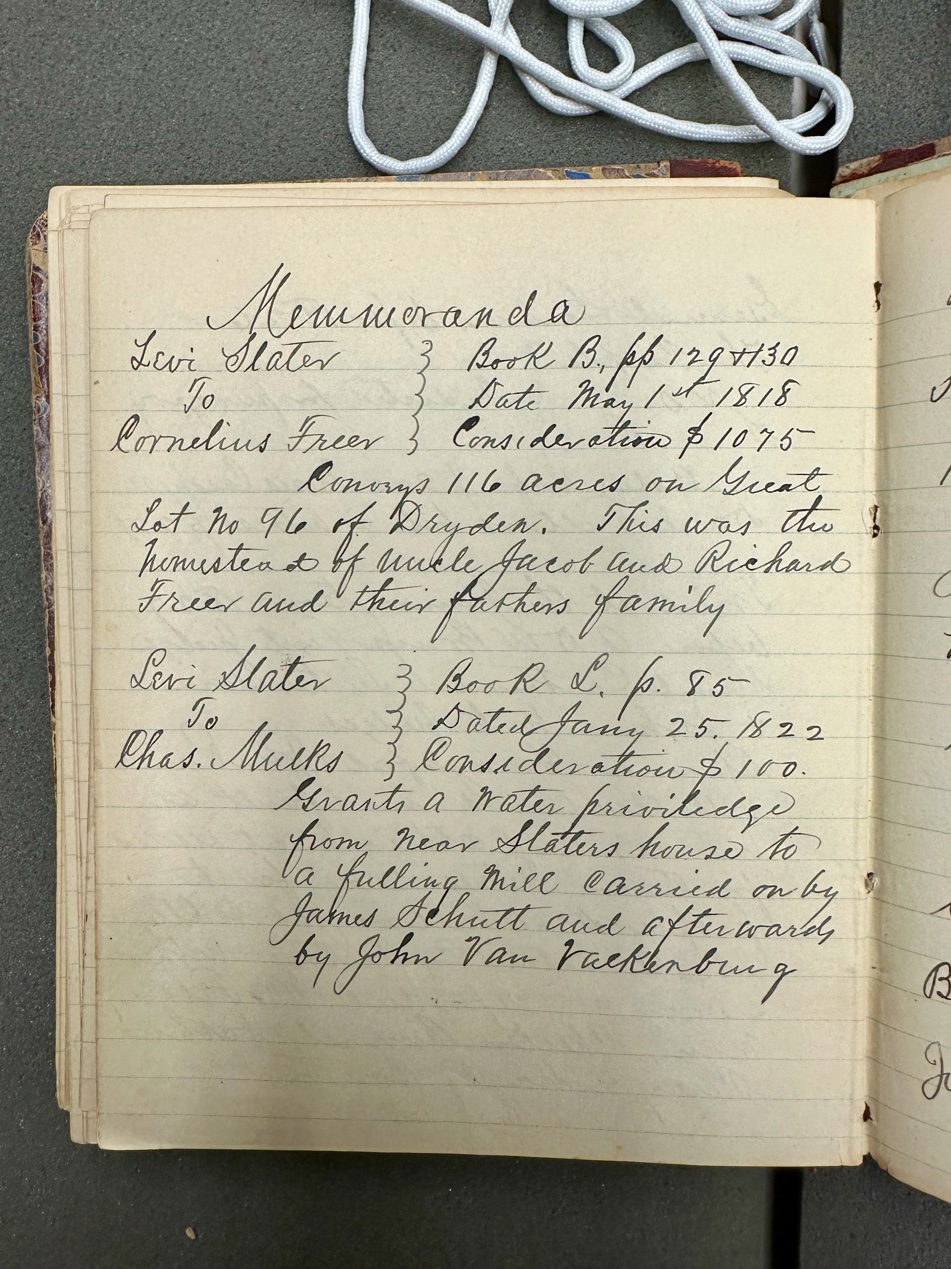 Memmoranda
Levi Slater } Book B., pp 129+130
To } Date May 1st 1818
Cornelius Freer } Consideration $1075
Convys 116 acres on Great
Lot No 96 of Dryden. This was the
homestead of uncle Jacob and Richard
Freer and their fathers family
Levi Slater } Book L. p. 85
To } Dated Jany 25. 1822
Chas. Mulks } Consideration $100.
Grants a water priviledge
from near Slaters house to
a fulling mill carried on by
James Schutt and afterwards
by John Van Valkenburg
B